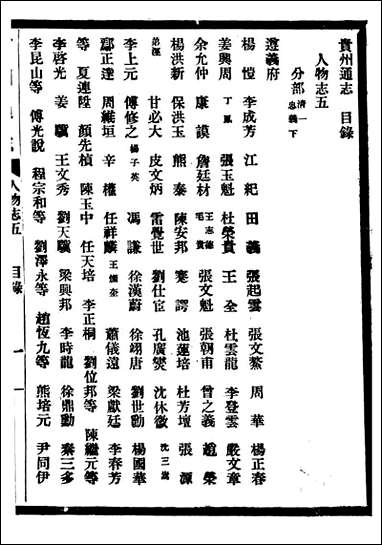 貴州通志 目錄
人物志五
分部 清一 忠義下
遵義府
楊愷 李成芳 江紀 田義 張起雲 張文鰲 周華 楊正春
姜興周 丁鳳 張玉魁 杜榮貴 王全 杜雲龍 李登雲 嚴文章
余允仲 康謨 詹廷材 王志德 毛貴 張文魁 張朝甫 曾之義 趙榮
楊洪新 保洪玉 熊泰 陳安邦 蹇諤 池蓮培 杜芳壇 張源
弟涇 甘必大 皮文炳 雷覺世 劉仕宦 孔廣爕 沈休徵 沈三嵩
李上元 傅修之 楊子英 馮謙 徐漢蔚 徐翊唐 劉世勳 楊國華
鄢正達 周維垣 辛權 任祥麟 王煓奎 蕭儀遠 梁獻廷 李春芳
等 夏連陞 顏先楨 陳玉中 任天培 李正桐 劉位邦等 陳繼元等
李啓光 姜驥 王文秀 劉天驥 梁興邦 李時龍 徐鼎勳 秦三多
李昆山等 傅光說 程宗和等 劉澤永等 趙恆九等 熊培元 尹同伊
人物志五 目錄 一